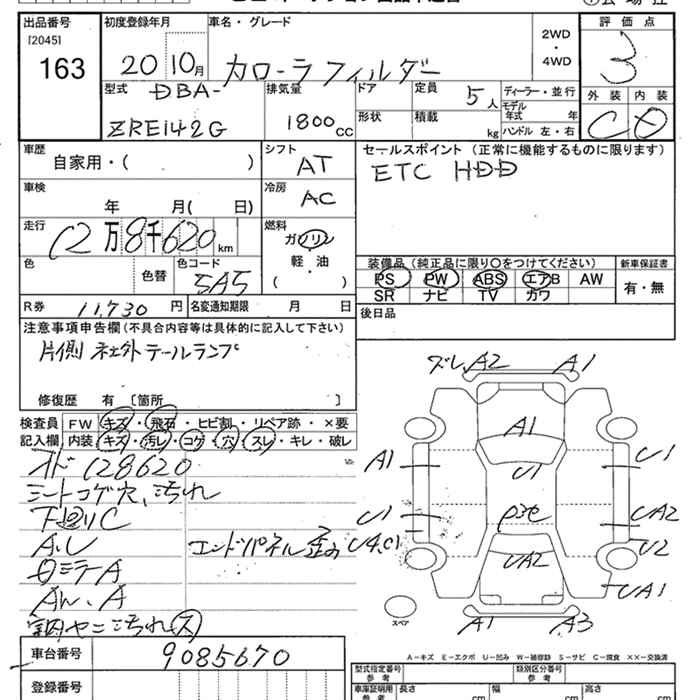 出品番号 初度登録年月 車名・グレード 評価点
[2045]
163 20 10月 カローラフィルダー 2WD・4WD 3
型式 DBA- 排気量 ドア 定員 5人 ディーラー・並行 外装 内装
ZRE142G 1800cc 形状 積載 kg モデル年式 年 C D
ハンドル 左・右
車歴 シフト セールスポイント (正常に機能するものに限ります)
自家用・( ) AT ETC HDD
車検 冷房
年 月( 日) AC
走行 燃料
12万8千620km ガソリン
軽・油
( )
装備品 (純正品に限り○をつけてください) 新車保証書
色 色替 色コード 5A5 PS PW ABS エアB AW 有・無
SR ナビ TV カワ
R券 11,730円 名変通知期限 月 日 後日品
注意事項申告欄 (不具合内容等は具体的に記入して下さい)
片側社外テールランプ
修復歴 有 〔箇所 〕
検査員 FW キズ・飛石・ヒビ割・リペア跡・×要
記入欄 内装 キズ・汚れ・コゲ・穴・スレ・キレ・破レ
128620
シートコゲ穴、汚れ
下廻りC
A.U エンドパネル歪み U4,C1
AW、A
室内ヤニ汚れ(大)
ズレ,A2 A1
A1
A1 U1 U1
U1 P3セ UA2
UA2 U2
UA1
スペア
A1 A3
A-キズ E-エクボ U-凹み W-補修跡 S-サビ C-腐食 XX-交換済
車台番号 9085670
登録番号
型式指定番号 参考 類別区分番号 参考
車庫証明用 参考 長さ cm 幅 cm 高さ cm